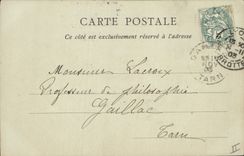 CARTE POSTALE
Ce côté est exclusivement réservé à l'adresse
Monsieur Lacroix
Professeur de philosophie
Gaillac
Tarn
TARN